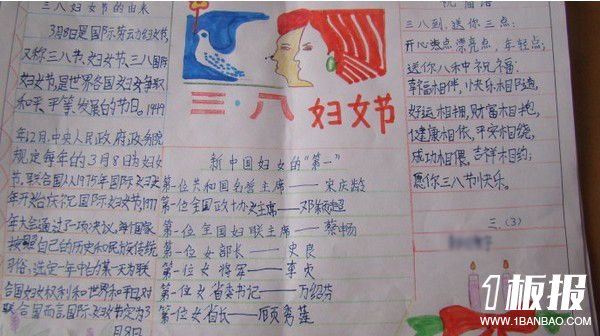 三八妇女节的由来
3月8日是国际劳动妇女节,
又称三八节、妇女节、三八国际
妇女节,是世界各国妇女争取
和平、平等、发展的节日。1949
年12月,中央人民政府政务院
规定每年的3月8日为妇女
节。联合国从1975年国际妇女
年开始庆祝国际妇女节,1977
年大会通过了一项决议,每个国家
按照自己的历史和民族传统
习俗,选定一年中的某一天为联
合国妇女权利和世界和平日。对
联合国而言,国际妇女节定为3
月8日
三·八
妇女节
新中国妇女的"第一"
第一位共和国名誉主席——宋庆龄
第一位全国政协主席——邓颖超
第一位全国妇联主席——蔡畅
第一位女部长——史良
第一位女将军——李贞
第一位女省委书记——万绍芬
第一位女省长——顾秀莲
祝福语
三八到,送你三点:
开心点漂亮点,年轻点;
送你八种祝福:
幸福相伴,快乐相随,
好运相拥,财富相抱,
健康相依,平安相绕,
成功相偎,吉祥相约;
愿你三八节快乐。
三.(3)
1板报
WWW.1BANBAO.COM